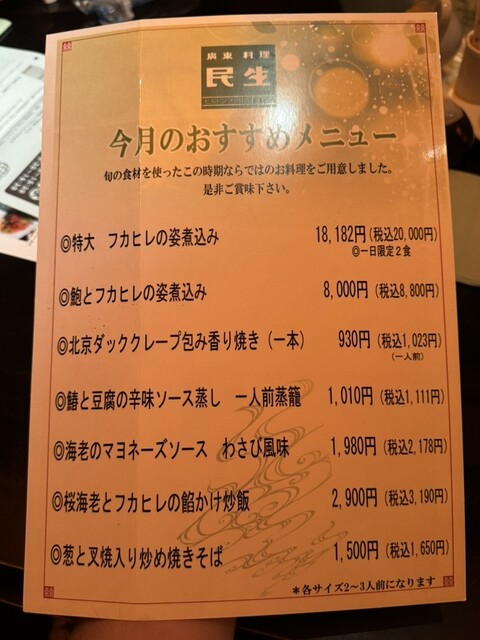 廣東料理
民生
今月のおすすめメニュー
旬の食材を使ったこの時期ならではのお料理をご用意しました。
是非ご賞味下さい。
◎特大 フカヒレの姿煮込み 18,182円(税込20,000円)
◎一日限定２食
◎鮑とフカヒレの姿煮込み 8,000円(税込8,800円)
◎北京ダッククレープ包み香り焼き（一本） 930円(税込1,023円)
(一人前)
◎鰆と豆腐の辛味ソース蒸し 一人前蒸籠 1,010円(税込1,111円)
◎海老のマヨネーズソース わさび風味 1,980円(税込2,178円)
◎桜海老とフカヒレの餡かけ炒飯 2,900円(税込3,190円)
◎葱と叉焼入り炒め焼きそば 1,500円(税込1,650円)
＊各サイズ2～3人前になります